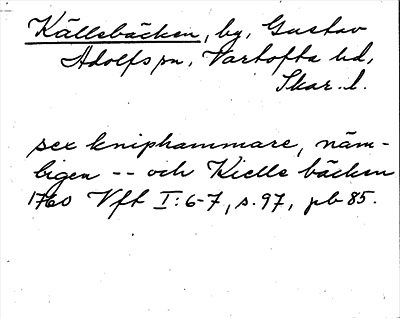 Källebäcken, by, Gustav
Adolfs sn, Vartofta hd,
Skar. l.
sex kniphammare, näm-
ligen -- och Kiells bäcken
1760 Vft I:6-7, s. 97, pb 85.